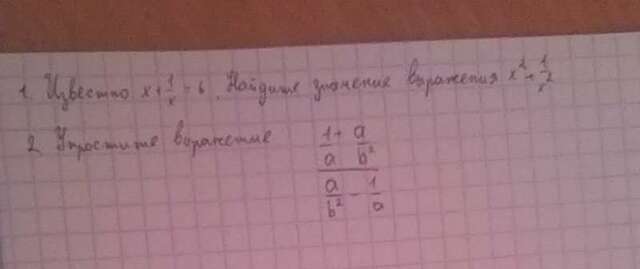 1. Известно x + 1/x = 6. Найдите значение выражения x² + 1/x²
2 Упростите выражение (1/a + a/b²) / (a/b² - 1/a)